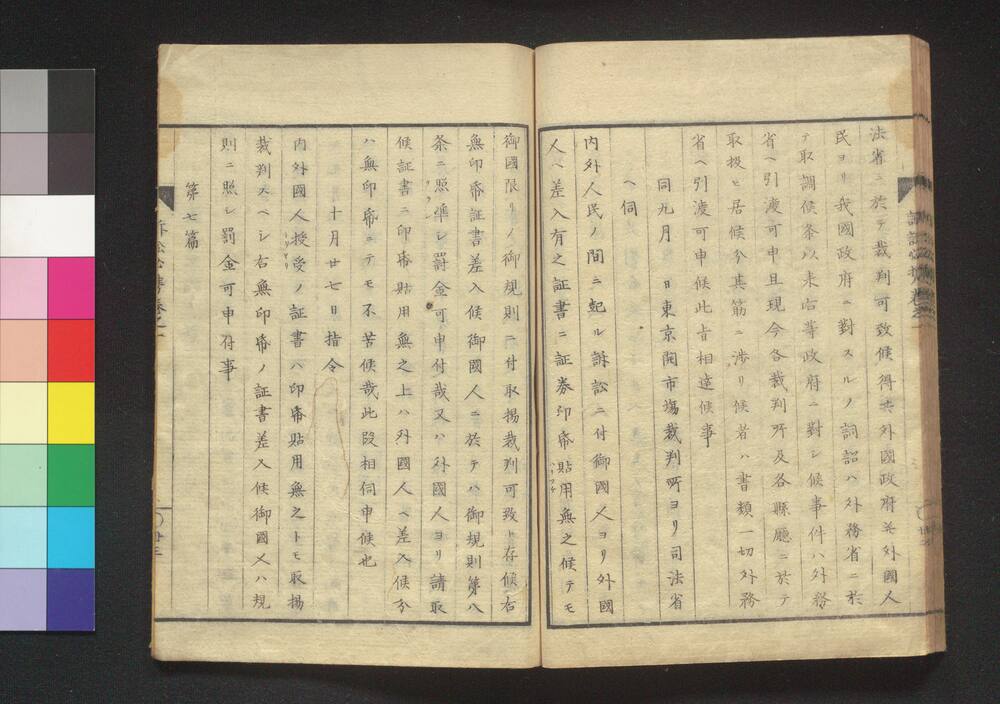 法省ニ於テ裁判可致候得共外國政府並外國人
民ヨリ我國政府ニ對スルノ詞訟ハ外務省ニ於
テ取調候条以来右等政府ニ對シ候事件ハ外務
省ヘ引渡可申且現今各裁判所及各縣廳ニ於テ
取扱ヒ居候分其筋ニ渉リ候者ハ書類一切外務
省ヘ引渡可申候此旨相達候事
同九月 日東京開市場裁判所ヨリ司法省
ヘ伺
内外人民ノ間ニ起ル訴訟ニ付御國人ヨリ外國
人ヘ差入有之証書ニ証券印帋貼用無之候テモ
御國限リノ御規則ニ付取揚裁判可致ト存候右
無印帋証書差入候御國人ニ於テハ御規則第八
条ニ照準シ罰金可申付哉又ハ外國人ヨリ請取
候証書ニ印帋貼用無之上ハ外國人ヘ差入候分
ハ無印帋ニテモ不苦候哉此段相伺申候也
十月廿七日指令
内外國人授受ノ証書ハ印帋貼用無之トモ取揚
裁判スヘシ右無印帋ノ証書差入候御國人ハ規
則ニ照シ罰金可申付事
第七篇
訴訟必携巻之一
廿三